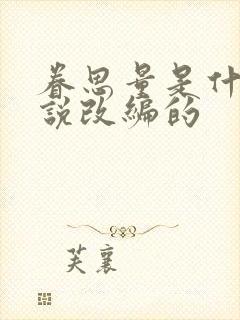 眷思量是什
說改編的
芙襄